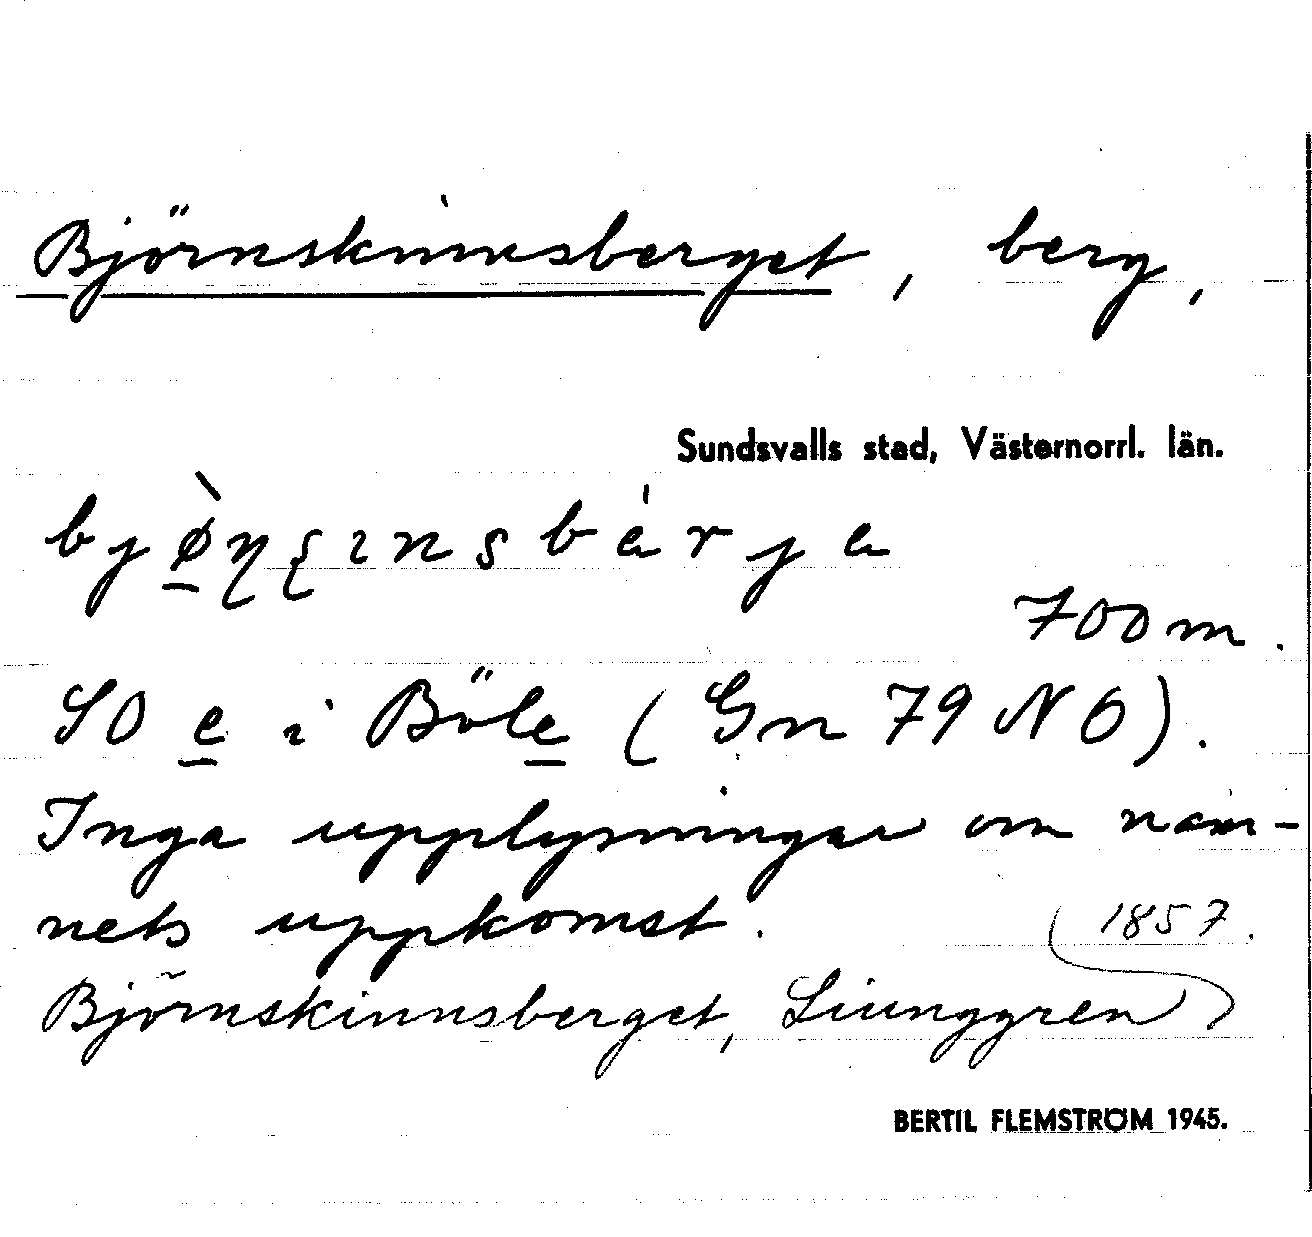 Björnskinnsberget, berg,
Sundsvalls stad, Västernorrl. län.
700 m.
SO e i Böle (Gn 79 NO).
Inga upplysningar om nam-
nets uppkomst.
1857.
Björnskinnsberget, Liunggren
BERTIL FLEMSTRÖM 1945.